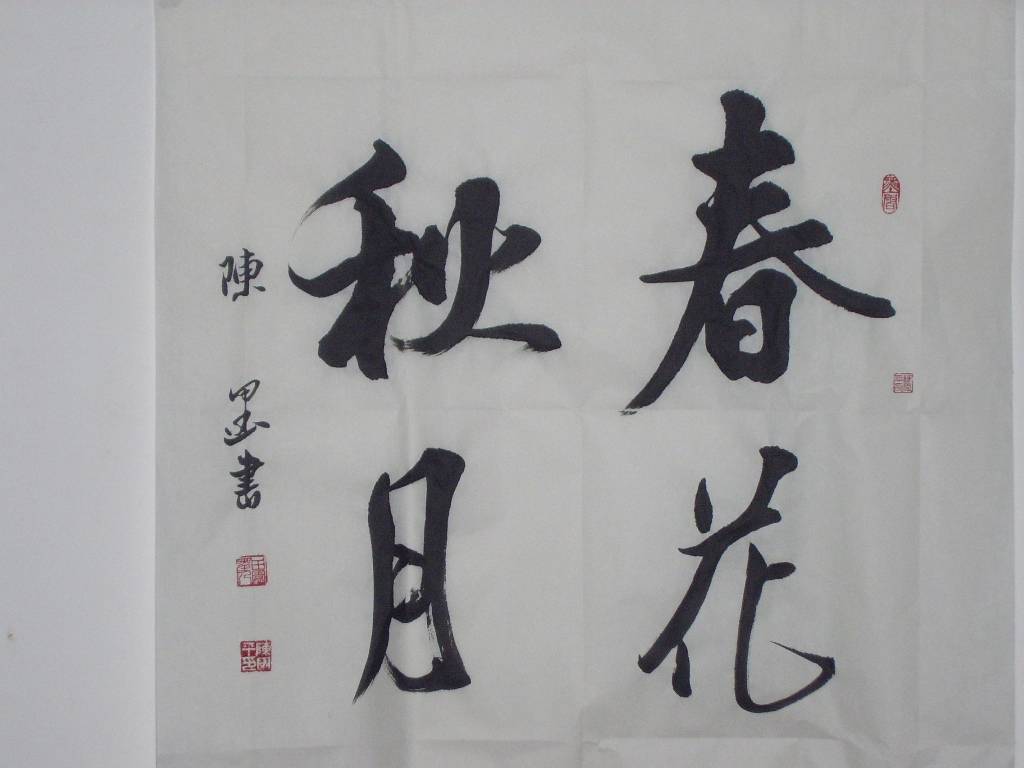 春花
秋月
陳墨書